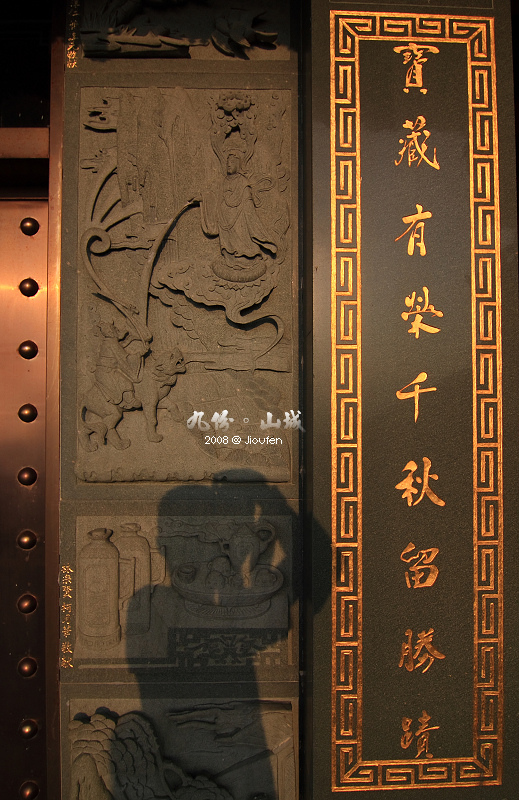 寶藏有榮千秋留勝蹟
九份。山城
2008 @ Jioufen